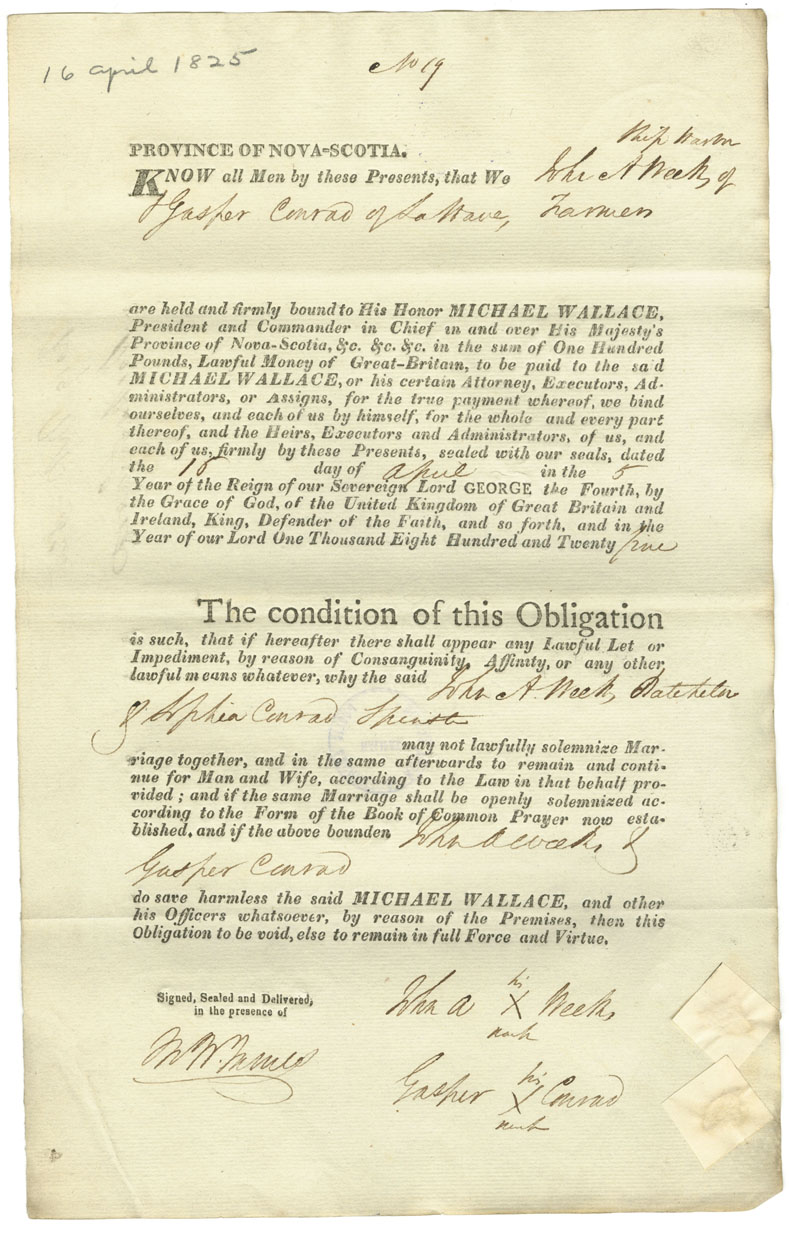 16 april 1825
No 19
Ship Harbr
PROVINCE OF NOVA-SCOTIA.
KNOW all Men by these Presents, that We John A Week, of
& Gasper Conrad of La Have, Farmers
are held and firmly bound to His Honor MICHAEL WALLACE,
President and Commander in Chief in and over His Majesty's
Province of Nova-Scotia, &c. &c. &c. in the sum of One Hundred
Pounds, Lawful Money of Great-Britain, to be paid to the said
MICHAEL WALLACE, or his certain Attorney, Executors, Ad-
ministrators, or Assigns, for the true payment whereof, we bind
ourselves, and each of us by himself, for the whole and every part
thereof, and the Heirs, Executors and Administrators, of us, and
each of us, firmly by these Presents, sealed with our seals, dated
the day of april in the 5
Year of the Reign of our Sovereign Lord GEORGE the Fourth, by
the Grace of God, of the United Kingdom of Great Britain and
Ireland, King, Defender of the Faith, and so forth, and in the
Year of our Lord One Thousand Eight Hundred and Twenty five
The condition of this Obligation
is such, that if hereafter there shall appear any Lawful Let or
Impediment, by reason of Consanguinity, Affinity, or any other
lawful means whatever, why the said John A. Week, Batchelor
& Sophia Conrad Spinster
may not lawfully solemnize Mar-
riage together, and in the same afterwards to remain and conti-
nue for Man and Wife, according to the Law in that behalf pro-
vided; and if the same Marriage shall be openly solemnized ac-
cording to the Form of the Book of Common Prayer now esta-
blished, and if the above bounden John A Week, &
Gasper Conrad
do save harmless the said MICHAEL WALLACE, and other
his Officers whatsoever, by reason of the Premises, then this
Obligation to be void, else to remain in full Force and Virtue.
Signed, Sealed and Delivered,
in the presence of
John A his X mark Week,
Gasper his X mark Conrad